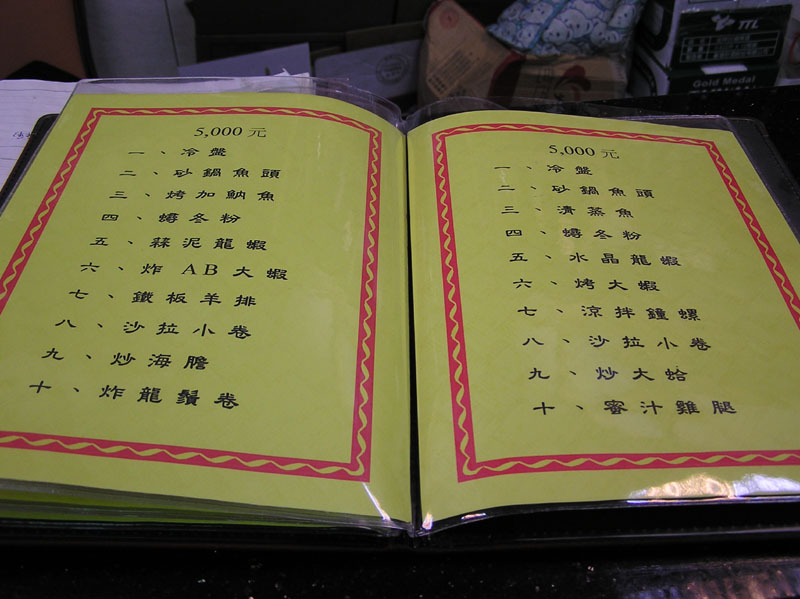 5,000 元
一、冷盤
二、砂鍋魚頭
三、烤加魶魚
四、蟳冬粉
五、蒜泥龍蝦
六、炸 AB 大蝦
七、鐵板羊排
八、沙拉小卷
九、炒海膽
十、炸龍鬚卷
5,000 元
一、冷盤
二、砂鍋魚頭
三、清蒸魚
四、蟳冬粉
五、水晶龍蝦
六、烤大蝦
七、涼拌鐘螺
八、沙拉小卷
九、炒大蛤
十、蜜汁雞腿
TTL
Gold Medal